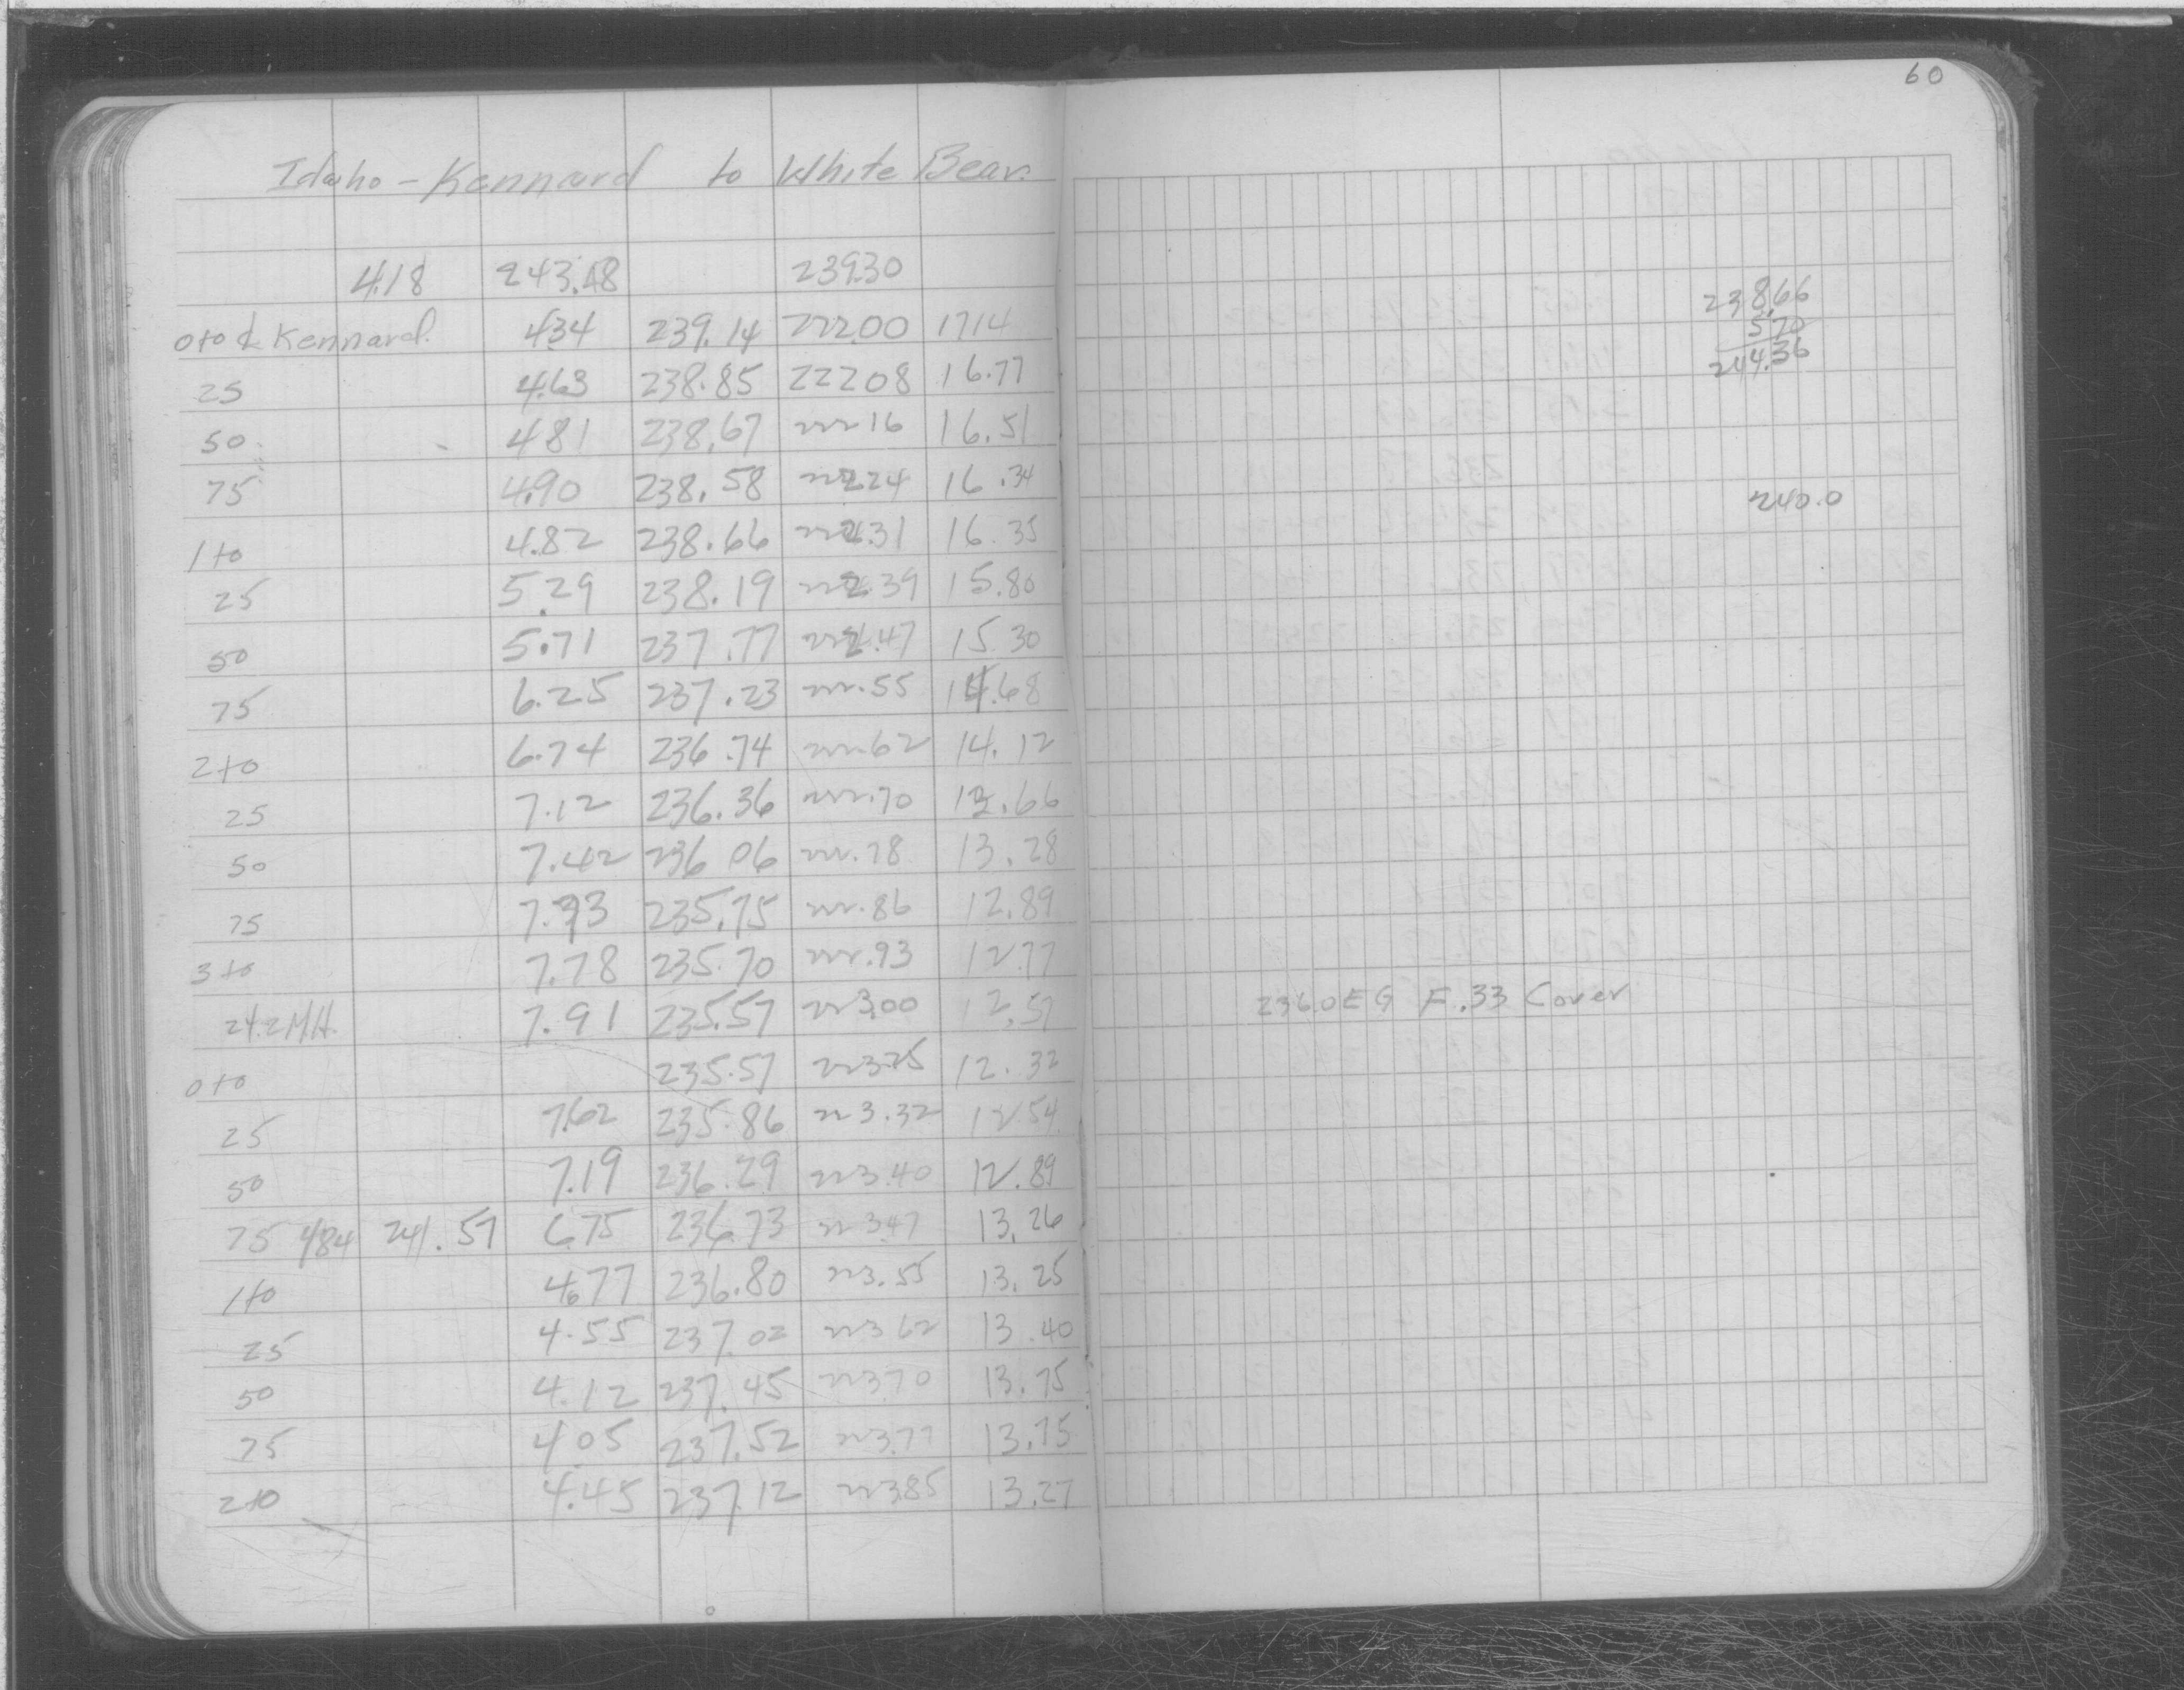 60
Idaho - Kennard to White Bear.
4.18 243.48 239.30
0+0 ℄ Kennard. 4.34 239.14 222.00 17.14
25 4.63 238.85 222.08 16.77
50 4.81 238.67 222.16 16.51
75 4.90 238.58 222.24 16.34
1+0 4.82 238.66 222.31 16.35
25 5.29 238.19 222.39 15.80
50 5.71 237.77 222.47 15.30
75 6.25 237.23 222.55 14.68
2+0 6.74 236.74 222.62 14.12
25 7.12 236.36 222.70 13.66
50 7.42 236.06 222.78 13.28
75 7.73 235.75 222.86 12.89
3+0 7.78 235.70 222.93 12.77
24.2 M.H. 7.91 235.57 223.00 12.57
0+0 235.57 223.25 12.32
25 7.62 235.86 223.32 12.54
50 7.19 236.29 223.40 12.89
75 4.84 241.57 6.75 236.73 223.47 13.26
1+0 4.77 236.80 223.55 13.25
25 4.55 237.02 223.62 13.40
50 4.12 237.45 223.70 13.75
75 4.05 237.52 223.77 13.75
2+0 4.45 237.12 223.85 13.27
238.66
5.70
244.36
240.0
236.0 EG F.33 Cover